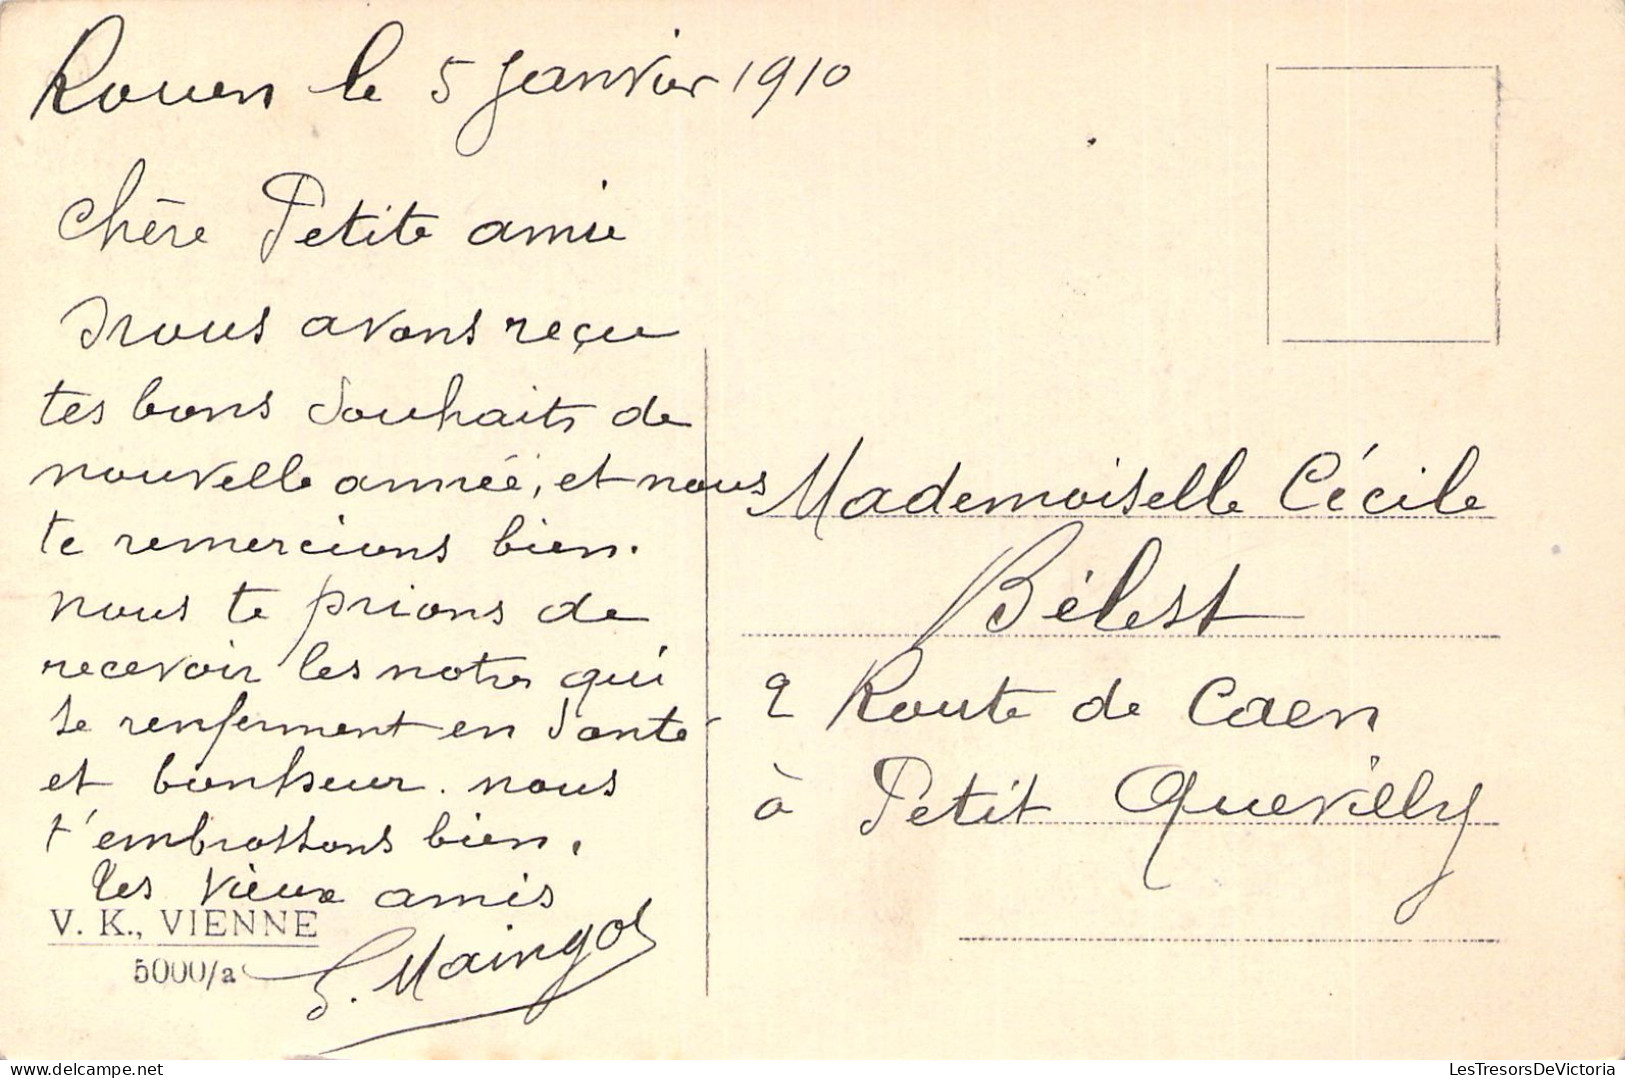 Rouen le 5 Janvier 1910
Chère Petite amie
nous avons reçu
tes bons souhaits de
nouvelle année, et nous
te remercions bien.
nous te prions de
recevoir les notres qui
se renferment en santé
et bonheur. nous
t'embrassons bien.
les vieux amis
Maingot
V. K., VIENNE
5000/a
Mademoiselle Cécile
Bélest
2 Route de Caen
à Petit Quevilly
LesTresorsDeVictoria